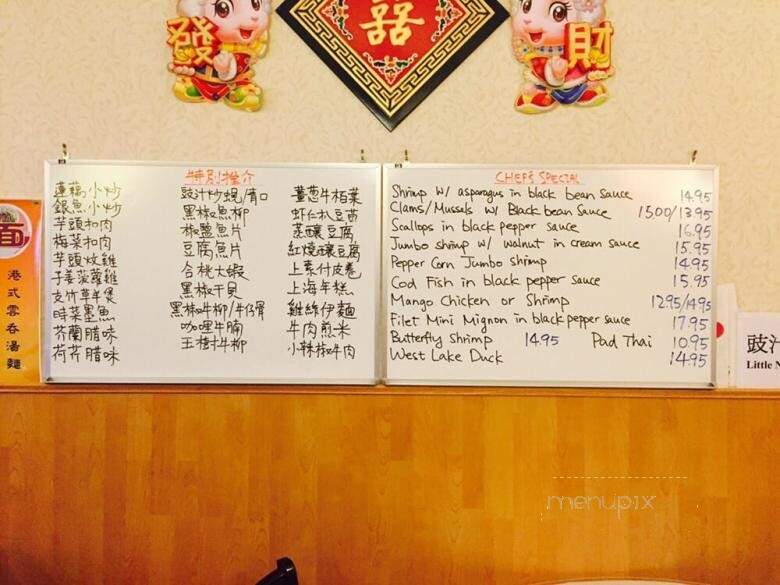 發
囍
財
特別推介
蓮藕小炒
銀魚小炒
芋頭扣肉
梅菜扣肉
芋頭炆雞
子姜菠蘿雞
支竹草羊煲
時菜墨魚
芥蘭腊味
荷芹腊味
豉汁炒蜆/青口
黑椒魚柳
椒鹽魚片
豆腐魚片
合桃大蝦
黑椒干貝
黑椒牛柳/牛仔骨
咖喱牛腩
玉樹牛柳
薑蔥牛栢葉
虾仁扒豆苗
蒸釀豆腐
紅燒釀豆腐
上素付皮卷
上海年糕
雞絲伊麵
牛肉煎米
小辣椒牛肉
CHEF'S SPECIAL
Shrimp w/ asparagus in black bean sauce 14.95
Clams/Mussels w/ Black bean Sauce 15.00/13.95
Scallops in black pepper sauce 16.95
Jumbo shrimp w/ walnut in cream sauce 15.95
Pepper Corn Jumbo shrimp 14.95
Cod Fish in black pepper sauce 15.95
Mango Chicken or Shrimp 12.95/14.95
Filet Mini Mignon in black pepper sauce 17.95
Butterfly Shrimp 14.95 Pad Thai 10.95
West Lake Duck 14.95
面
港式雲吞湯麵
豉汁
Little N
menupix